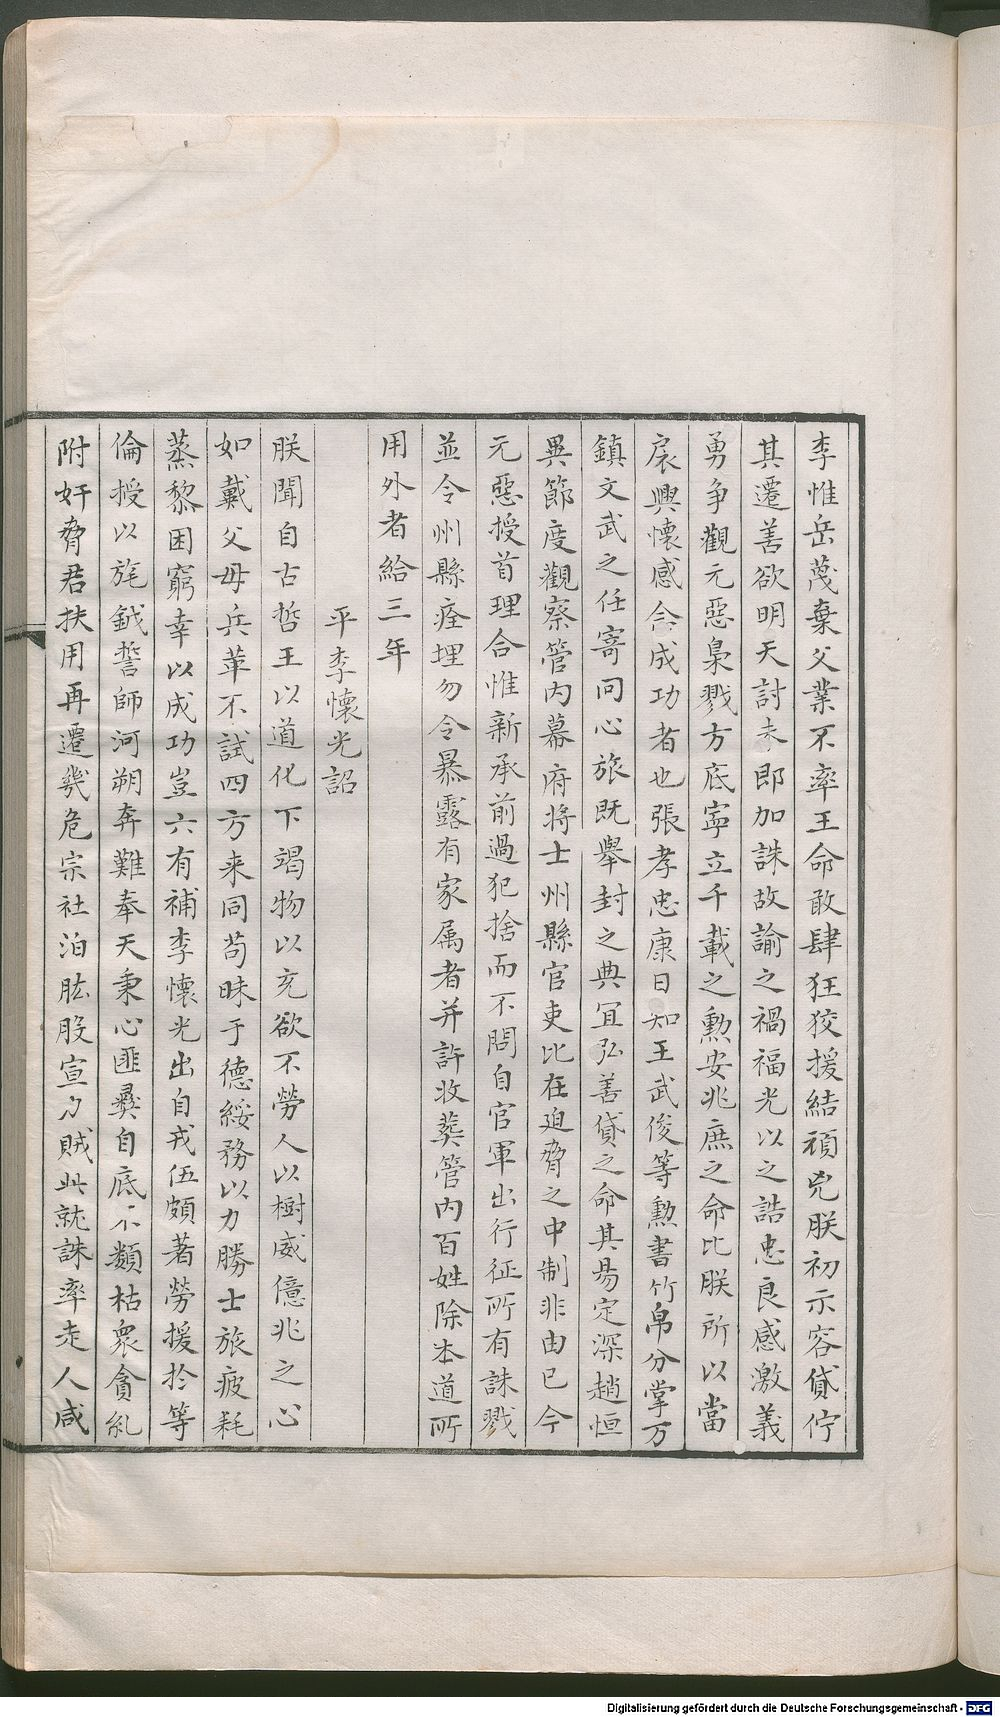 李惟岳蔑棄父業不率王命敢肆狂狡援結頑兇朕初示容貸佇
其遷善欲明天討未即加誅故諭之禍福光以之誥忠良感激義
勇爭觀元惡梟戮方底寜立千載之勳安兆庶之命比朕所以當
扆興懷感含成功者也張孝忠康日知王武俊等勳書竹帛分掌万
鎮文武之任寄同心旅既舉封之典宜弘善貸之命其昜定深趙恒
異節度觀察管内幕府将士州縣官吏比在迫脅之中制非由已今
元惡授首理合惟新承前過犯捨而不問自官軍出行征所有誅戮
並令州縣痊埋勿令暴露有家属者并許收葬管内百姓除本道所
用外者給三年
平李懷光詔
朕聞自古哲王以道化下竭物以充欲不勞人以樹威億兆之心
如戴父母兵革不試四方来同苟昧于德綏務以力勝士旅疲耗
蒸黎困窮幸以成功豈六有補李懷光出自戎伍頗著勞援扵等
倫授以旄鉞誓師河朔奔難奉天秉心匪彛自底不類枯衆貪乱
附奸脅君扶用再遷幾危宗社洎肱股宣力賊此就誅率走人咸
Digitalisierung gefördert durch die Deutsche Forschungsgemeinschaft - DFG